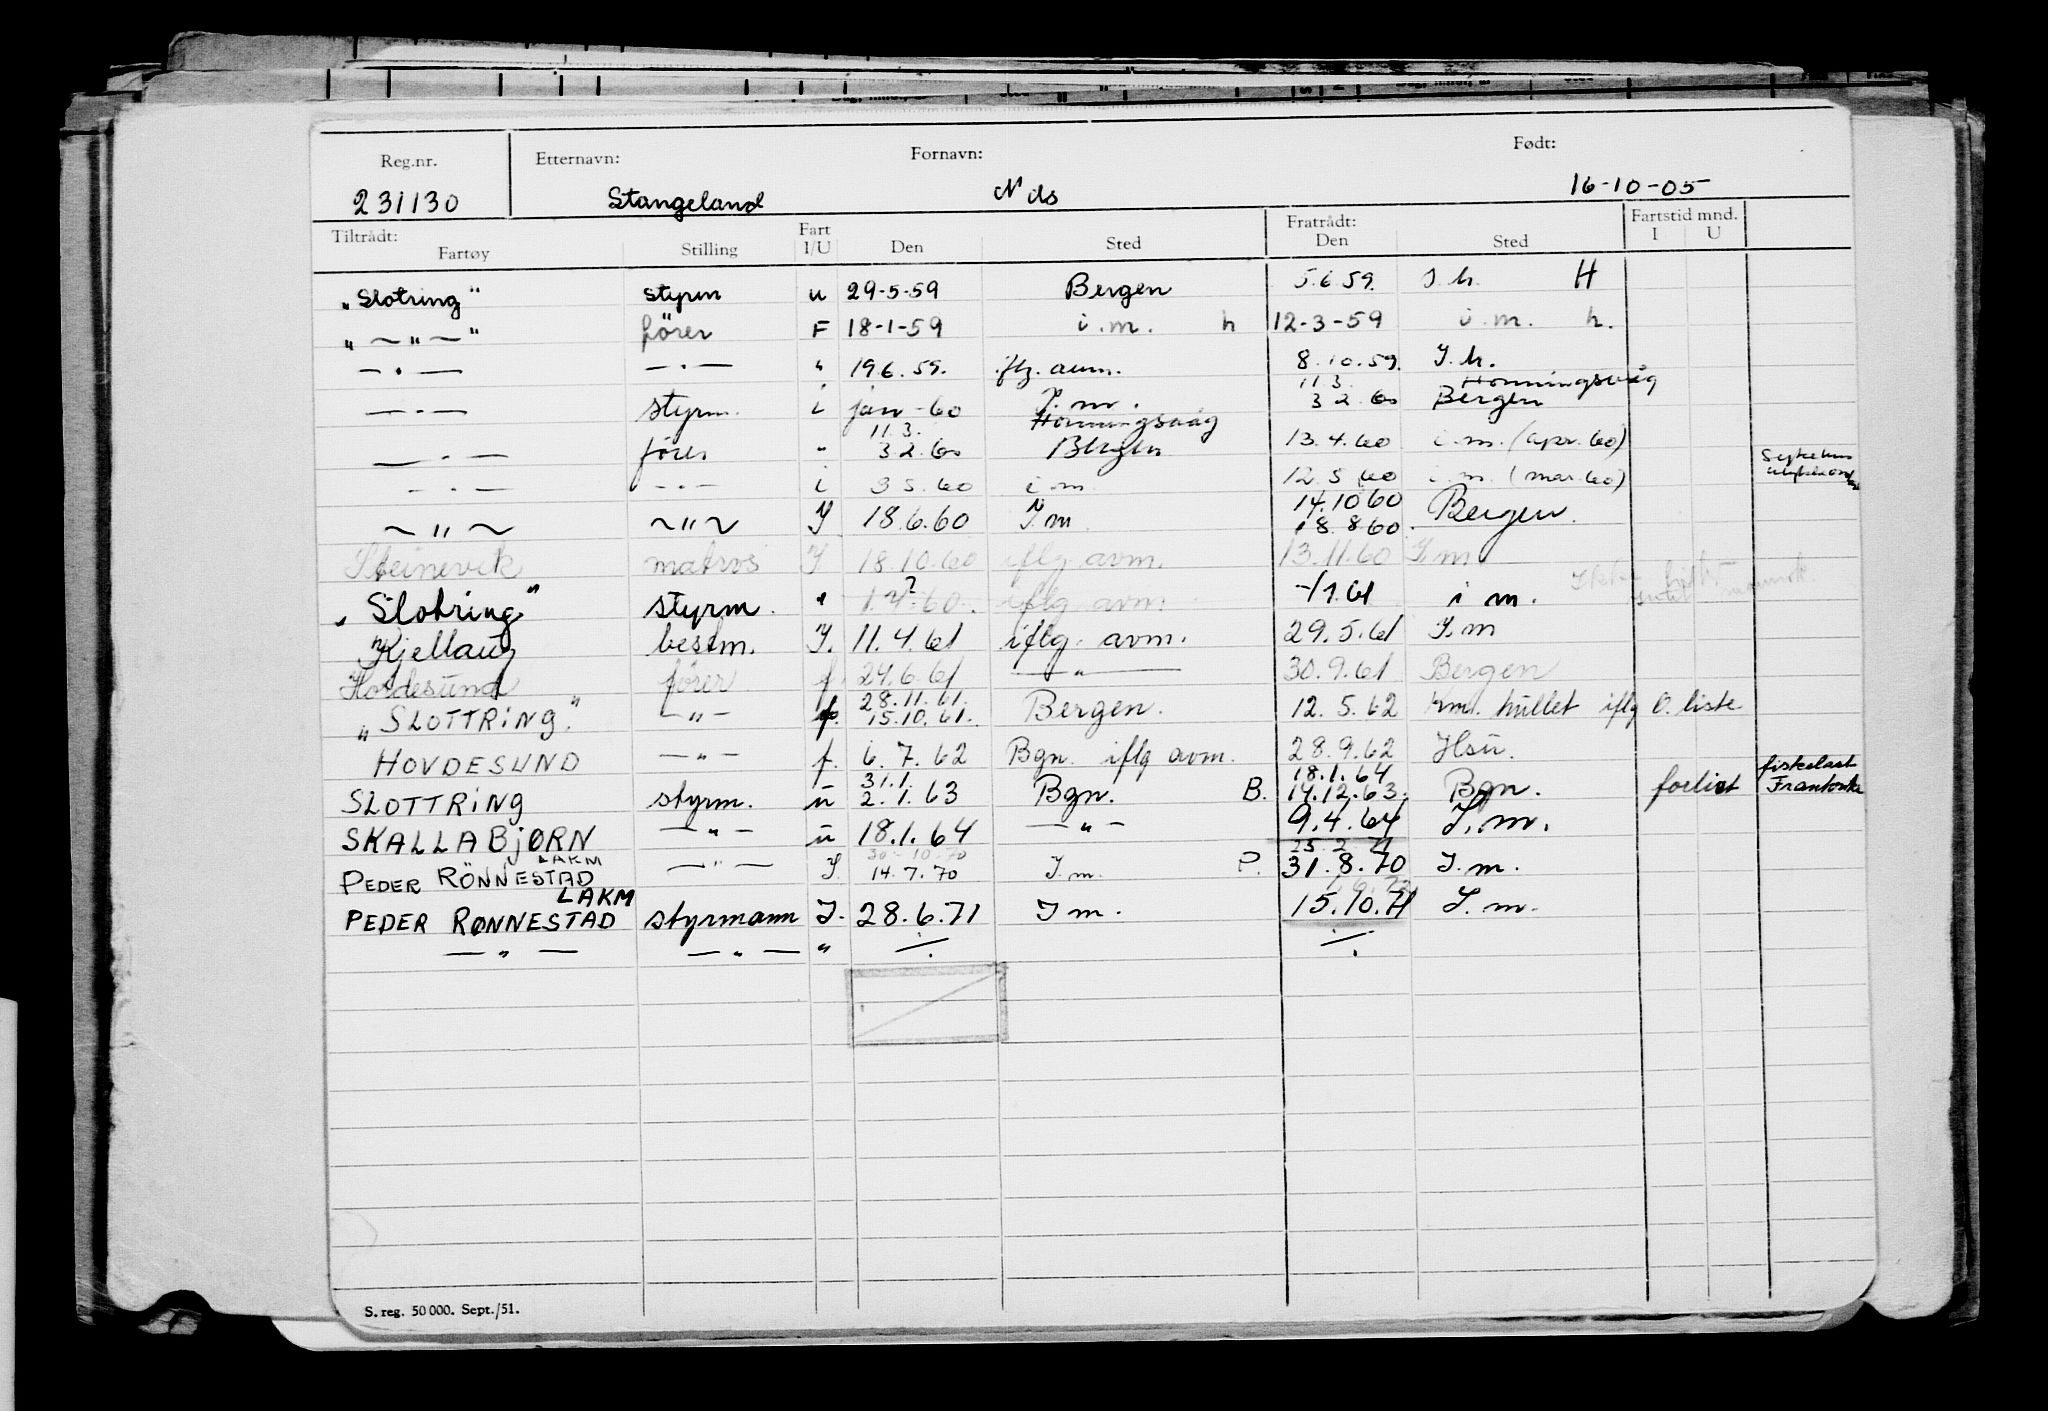 Reg.nr. Etternavn: Fornavn: Født:
231130 Stangeland Nils 16-10-05
Tiltrådt: Fartøy Stilling Fart I/U Den Sted Fratrådt: Den Sted Fartstid mnd. I U
"Slotring" styrm u 29-5-59 Bergen 5.6.59. I.h. H
"—"—" fører F 18-1-59 i.m. h 12-3-59 i.m. h.
—"— —"— " 19.6.59. iflg. avm. 8.10.59. I.h.
11.3. Honningsvåg
—"— styrm. i jan-60 I.m. 3.2.60 Bergen
11.3. Honningsvåg
—"— fører " 3.2.60 Bergen 13.4.60 i.m. (apr.60)
—"— —"— i 3.5.60 i m 12.5.60 i.m. (mar.60) Sykehus
14.10.60
~"~ ~"~ I 18.6.60 I.m 18.8.60. Bergen.
Steinevik matros I 18.10.60 iflg avm. 13.11.60 I.m
"Slotring" styrm. " 1.?.60. iflg avm. -/1.61 i m.
"Kjellaug bestm. I. 11.4.61 iflg. avm. 29.5.61 I.m
Hovdesund fører f. 24.6.61 —"— 30.9.61 Bergen
28.11.61.
"SLOTTRING." —"— f. 15.10.61. Bergen. 12.5.62 hullet iflg O.liste
HOVDESUND —"— f. 6.7.62 Bgn. iflg avm. 28.9.62 Hsu.
31.1. 18.1.64 fiskelast
SLOTTRING styrm. u 2.1.63 Bgn. B. 14.12.63. Bgn. forlist
SKALLABJØRN —"— u 18.1.64 —"— 9.4.64 I.m.
LAKM 30-10-70 25.2.71
PEDER RÖNNESTAD —"— I. 14.7.70 I.m. P. 31.8.70 I.m.
LAKM
PEDER RØNNESTAD styrmann I. 28.6.71 I m. 15.10.71 I.m.
—"— —"— " ÷ ÷
S. reg. 50 000. Sept./51.